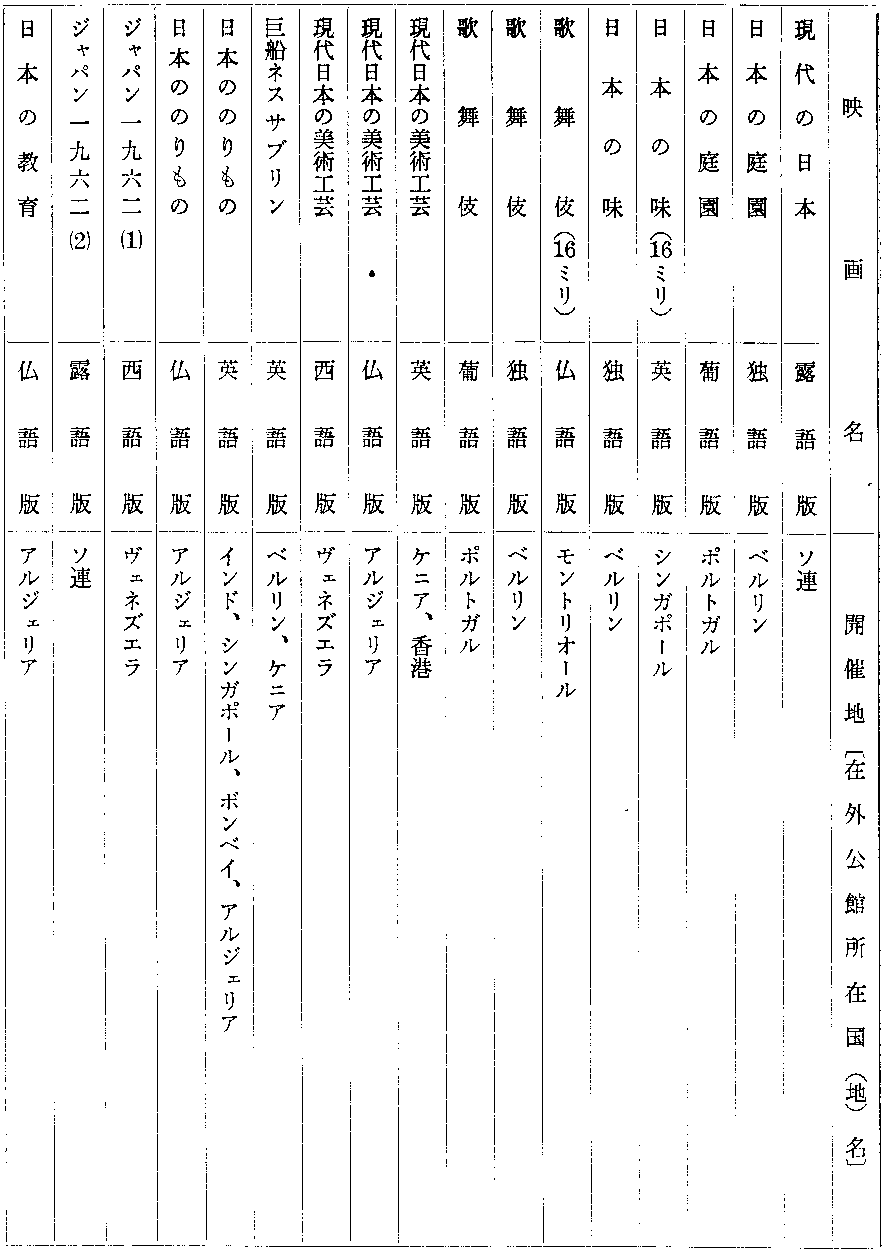 映画名 開催地〔在外公館所在国(地)名〕
現代の日本 露語版 ソ連
日本の庭園 独語版 ベルリン
日本の庭園 葡語版 ポルトガル
日本の味(16ミリ) 英語版 シンガポール
日本の味 独語版 ベルリン
歌舞伎(16ミリ) 仏語版 モントリオール
歌舞伎 独語版 ベルリン
歌舞伎 葡語版 ポルトガル
現代日本の美術工芸 英語版 ケニア、香港
現代日本の美術工芸 仏語版 アルジェリア
現代日本の美術工芸 西語版 ヴェネズエラ
巨船ネスサブリン 英語版 ベルリン、ケニア
日本ののりもの 英語版 インド、シンガポール、ボンベイ、アルジェリア
日本ののりもの 仏語版 アルジェリア
ジャパン一九六二(1) 西語版 ヴェネズエラ
ジャパン一九六二(2) 露語版 ソ連
日本の教育 仏語版 アルジェリア